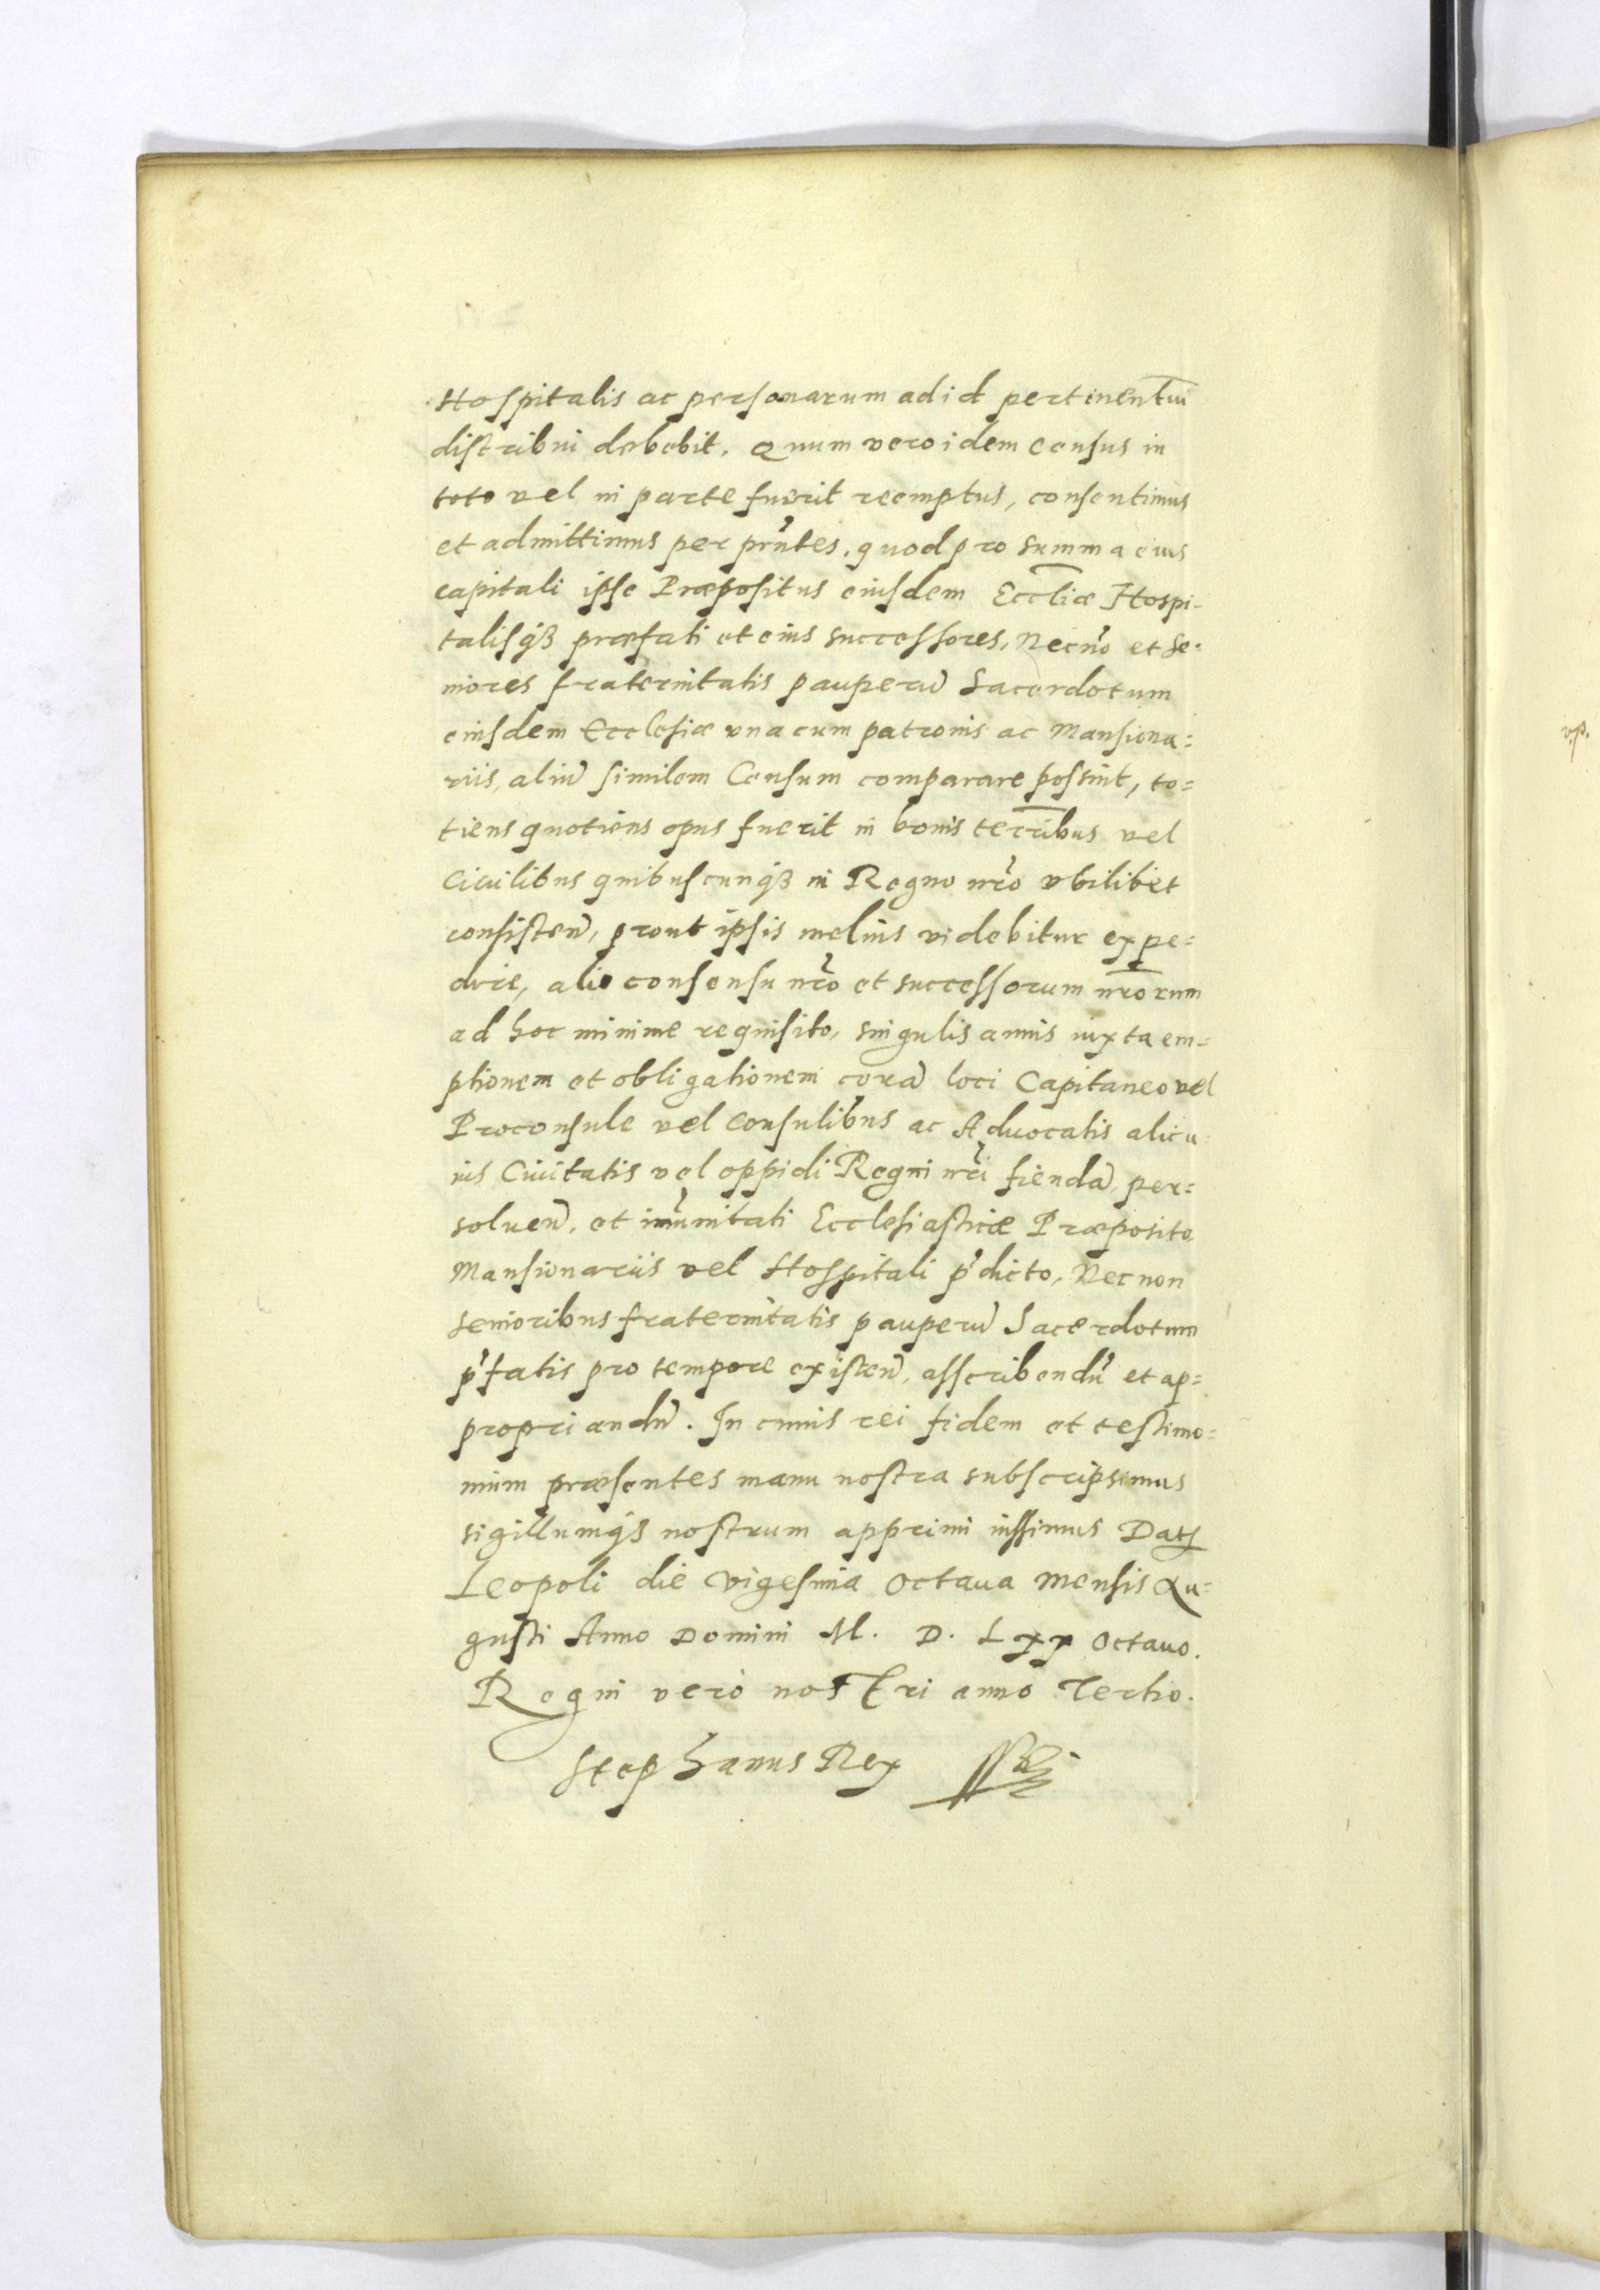 Hospitalis ac personarum ad id pertinentiũ
distribui debebit. Quum vero idem census in
toto vel in parte fuerit reemptus, consentimus
et admittimus per prñtes, quod pro summa eius
capitali ipse Præpositus eiusdem Eccl̃iæ Hospi-
talisq̃ȝ præfati et eius successores, Necnõ et Se-
niores fraternitatis pauperũ Sacerdotum
eiusdem Ecclesiæ una cum patronis ac Mansiona=
riis, aliũ similem Censum comparare possint, to=
tiens quotiens opus fuerit in bonis terr̃ibus vel
Ciuilibus quibuscunq̃ȝ in Regno nr̃o vbilibet
consisteñ, prout ipsis melius videbitur expe=
dire, alio consensu nr̃o et successorum nr̃orum
ad hoc minime requisito, singulis annis iuxta em=
ptionem et obligationem corã loci Capitaneo vel
Proconsule vel Consulibus ac Aduocatis alicu=
ius Ciuitatis vel oppidi Regni nr̃i fiendã, per=
solueñ, et im̃unitati Ecclesiasticæ Præposito
Mansionariis vel Hospitali p̃dicto, Nec non
senioribus fraternitatis pauperũ Sacerdotum
p̃fatis pro tempore existeñ, asscribendũ et ap=
propriandũ. In cuius rei fidem et testimo=
nium præsentes manu nostra subscripsimus
sigillumq̃ȝ nostrum apprimi iussimus Datꝭ
Leopoli die vigesima Octaua Mensis Au=
gusti Anno Domini M. D. Lxx Octauo.
Regni verò nostri anno Tertio.
Stephanus Rex